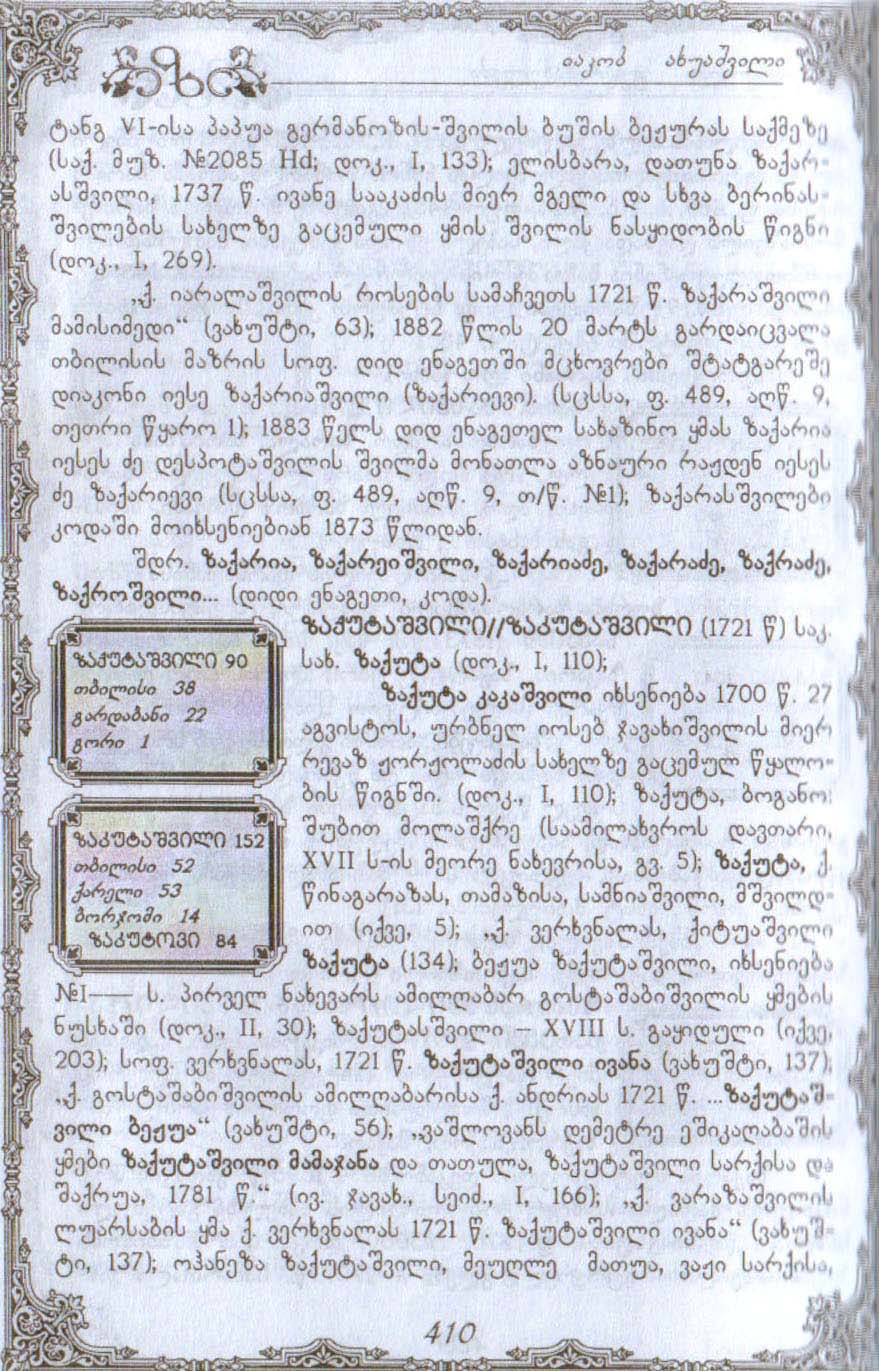 იაკობ ახუაშვილი
ტანგ VI-ისა პაპუა გერმანოზის-შვილის ბუშის ბეჟურას საქმეზე
(საქ. მუზ. №2085 Hd; დოკ., I, 133); ელისბარა, დათუნა ზაქარ-
ასშვილი, 1737 წ. ივანე სააკაძის მიერ მგელი და სხვა ბერინას-
შვილების სახელზე გაცემული ყმის შვილის ნასყიდობის წიგნი
(დოკ., I, 269).
„ქ. იარალაშვილის როსების სამაჩვეთს 1721 წ. ზაქარაშვილი
მამისიმედი“ (ვახუშტი, 63); 1882 წლის 20 მარტს გარდაიცვალა
თბილისის მაზრის სოფ. დიდ ენაგეთში მცხოვრები შტატგარეშე
დიაკონი იესე ზაქარიაშვილი (ზაქარიევი). (სცსსა, ფ. 489, აღწ. 9,
თეთრი წყარო 1); 1883 წელს დიდ ენაგეთელ სახაზინო ყმას ზაქარია
იესეს ძე დესპოტაშვილის შვილმა მონათლა აზნაური რაჟდენ იესეს
ძე ზაქარიევი (სცსსა, ფ. 489, აღწ. 9, თ/წ. №1); ზაქარასშვილები
კოდაში მოიხსენიებიან 1873 წლიდან.
შდრ. ზაქარია, ზაქარეიშვილი, ზაქარიაძე, ზაქარაძე, ზაქრაძე,
ზაქროშვილი... (დიდი ენაგეთი, კოდა).
ზაქუტაშვილი 90
თბილისი 38
გარდაბანი 22
გორი 1
ზაკუტაშვილი 152
თბილისი 52
ქარელი 53
ბორჯომი 14
ზაკუტოვი 84
ზაქუტაშვილი//ზაკუტაშვილი (1721 წ) საკ.
სახ. ზაქუტა (დოკ., I, 110);
ზაქუტა კაკაშვილი იხსენიება 1700 წ. 27
აგვისტოს, ურბნელ იოსებ ჯავახიშვილის მიერ
რევაზ ჟორჟოლაძის სახელზე გაცემულ წყალო-
ბის წიგნში. (დოკ., I, 110); ზაქუტა, ბოგანო;
შუბით მოლაშქრე (საამილახვროს დავთარი,
XVII ს-ის მეორე ნახევრისა, გვ. 5); ზაქუტა, ქ.
წინაგარაზას, თამაზისა, სამნიაშვილი, მშვილდ-
ით (იქვე, 5); „ქ. ვერხვნალას, ქიტუაშვილი
ზაქუტა (134); ბეჟუა ზაქუტაშვილი, იხსენიება
№I—— ს. პირველ ნახევარს ამილღაბარ გოსტაშაბიშვილის ყმების
ნუსხაში (დოკ., II, 30); ზაქუტასშვილი – XVIII ს. გაყიდული (იქვე,
203); სოფ. ვერხვნალას, 1721 წ. ზაქუტაშვილი ივანა (ვახუშტი, 137);
„ქ. გოსტაშაბიშვილის ამილღაბარისა ქ. ანდრიას 1721 წ. ...ზაქუტაშ-
ვილი ბეჟუა“ (ვახუშტი, 56); „ვაშლოვანს დემეტრე ეშიკაღაბაშის
ყმები ზაქუტაშვილი მამაჯანა და თათულა, ზაქუტაშვილი სარქისა და
შაქრუა, 1781 წ.“ (ივ. ჯავახ., სეიძ., I, 166); „ქ. ვარაზაშვილის
ლუარსაბის ყმა ქ. ვერხვნალას 1721 წ. ზაქუტაშვილი ივანა“ (ვახუშ-
ტი, 137); ოჰანეზა ზაქუტაშვილი, მეუღლე მათუა, ვაჟი სარქისა,
410